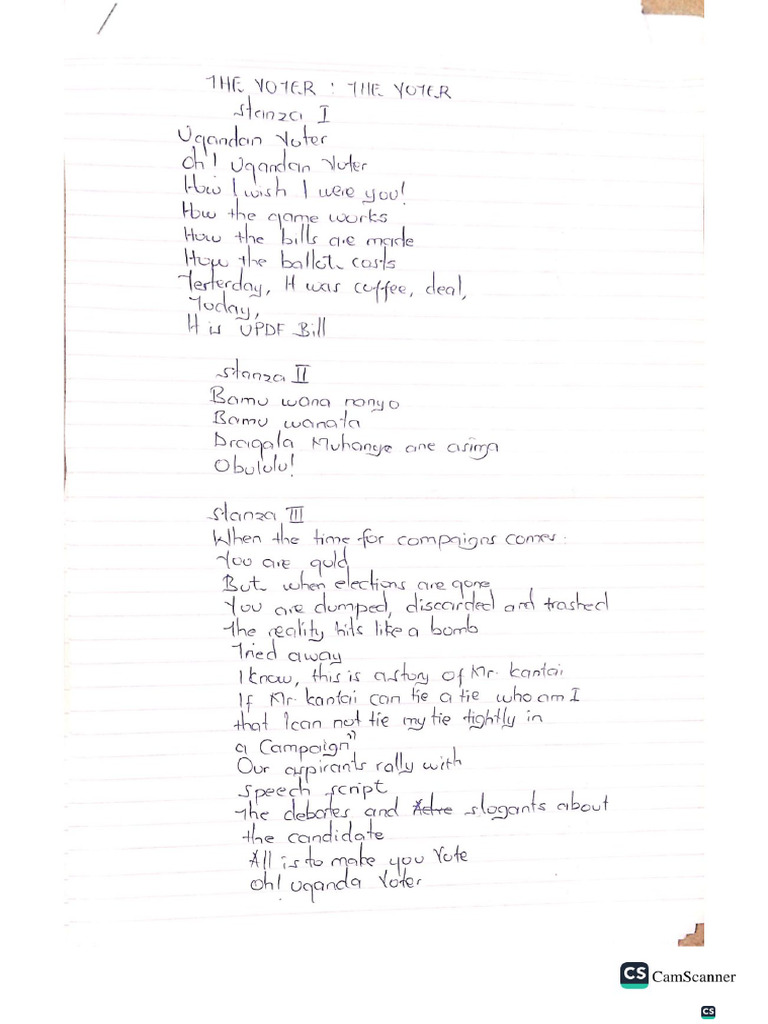 THE VOTER : THE VOTER
Stanza I
Ugandan Voter
Oh! Ugandan Voter
How I wish I were you!
How the game works
How the bills are made
How the ballot costs
Yesterday, It was coffee, deal,
Today,
It is UPDF Bill
Stanza II
Bamu wana nonyo
Bamu wanata
Muhange are asima
Obululu!
Stanza III
When the time for compaigns comes:
You are gold
But when elections are gone
You are dumped, discarded and trashed
The reality hits like a bomb
Tried away
I know, this is a story of Mr. kantai
If Mr. kantai can tie a tie who am I
that I can not tie my tie tightly in
a Campaign"
Our aspirants rally with
speech script
The debates and slogants about
the candidate
All is to make you Vote
Oh! Uganda Voter
CS CamScanner
CS